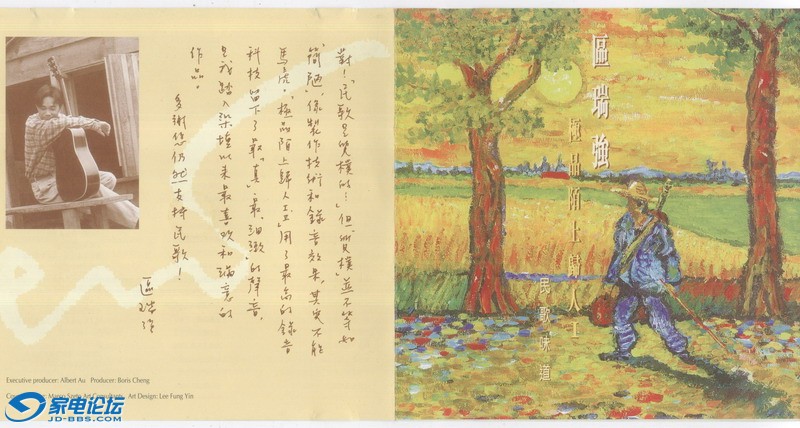 對！「民歌是質樸的…」但「質樸」並不等如
「簡陋」，係製作技術和錄音效果，其實不能
馬虎。「極品陌上歸人工」用了最高的錄音
科技留下了最「真」、最「細緻」的聲音，
是我踏入樂壇以來最喜歡和滿意的
作品。
多謝您仍然支持民歌！
區瑞強
Executive producer: Albert Au Producer: Boris Cheng
Art Design: Lee Fung Yin
家电论坛
JD-BBS.COM
區瑞強
極品陌上歸人工
民歌味道